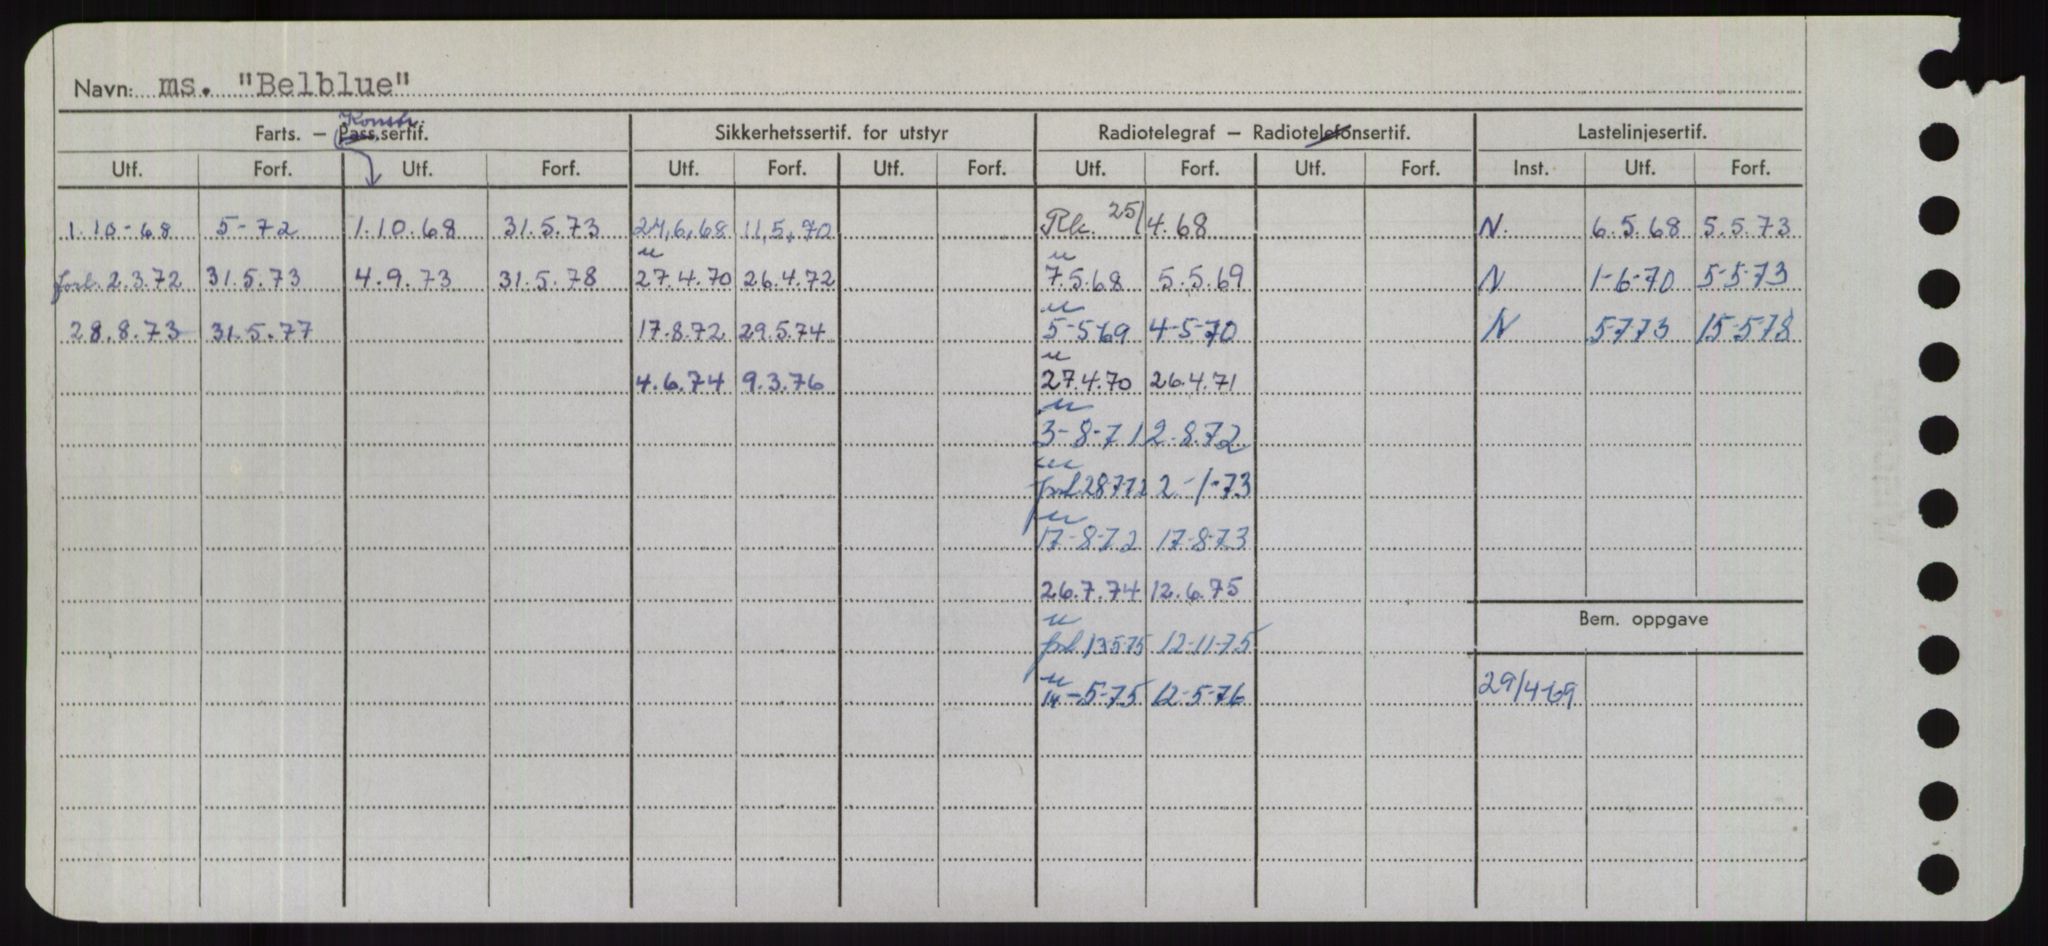 Navn: ms. "Belblue"
Konstr.
Farts. – Pass.sertif. Sikkerhetssertif. for utstyr Radiotelegraf – Radiotelefonsertif. Lastelinjesertif.
Utf. Forf. Utf. Forf. Utf. Forf. Utf. Forf. Utf. Forf. Utf. Forf. Inst. Utf. Forf.
1.10-68 5-72 1.10.68 31.5.73 24,6,68 11,5,70 Rk. 25/4.68 N. 6.5.68 5.5.73
u u
forl. 2.3.72 31.5.73 4.9.73 31.5.78 27.4.70 26.4.72 7.5.68 5.5.69 N 1-6-70 5-5-73
u
28.8.73 31.5.77 17.8.72 29.5.74 5-5-69 4-5-70 N 5-7-73 15-5-78
u
4.6.74 9.3.76 27.4.70 26.4.71
u
3-8-71 2-8.72
u
forl 28772 2-1-73
u
17-8-72 17-8-73
26.7.74 12.6.75
Bem. oppgave
u
forl 13575 12-11-75
u
14-5-75 12-5-76 29/4-69